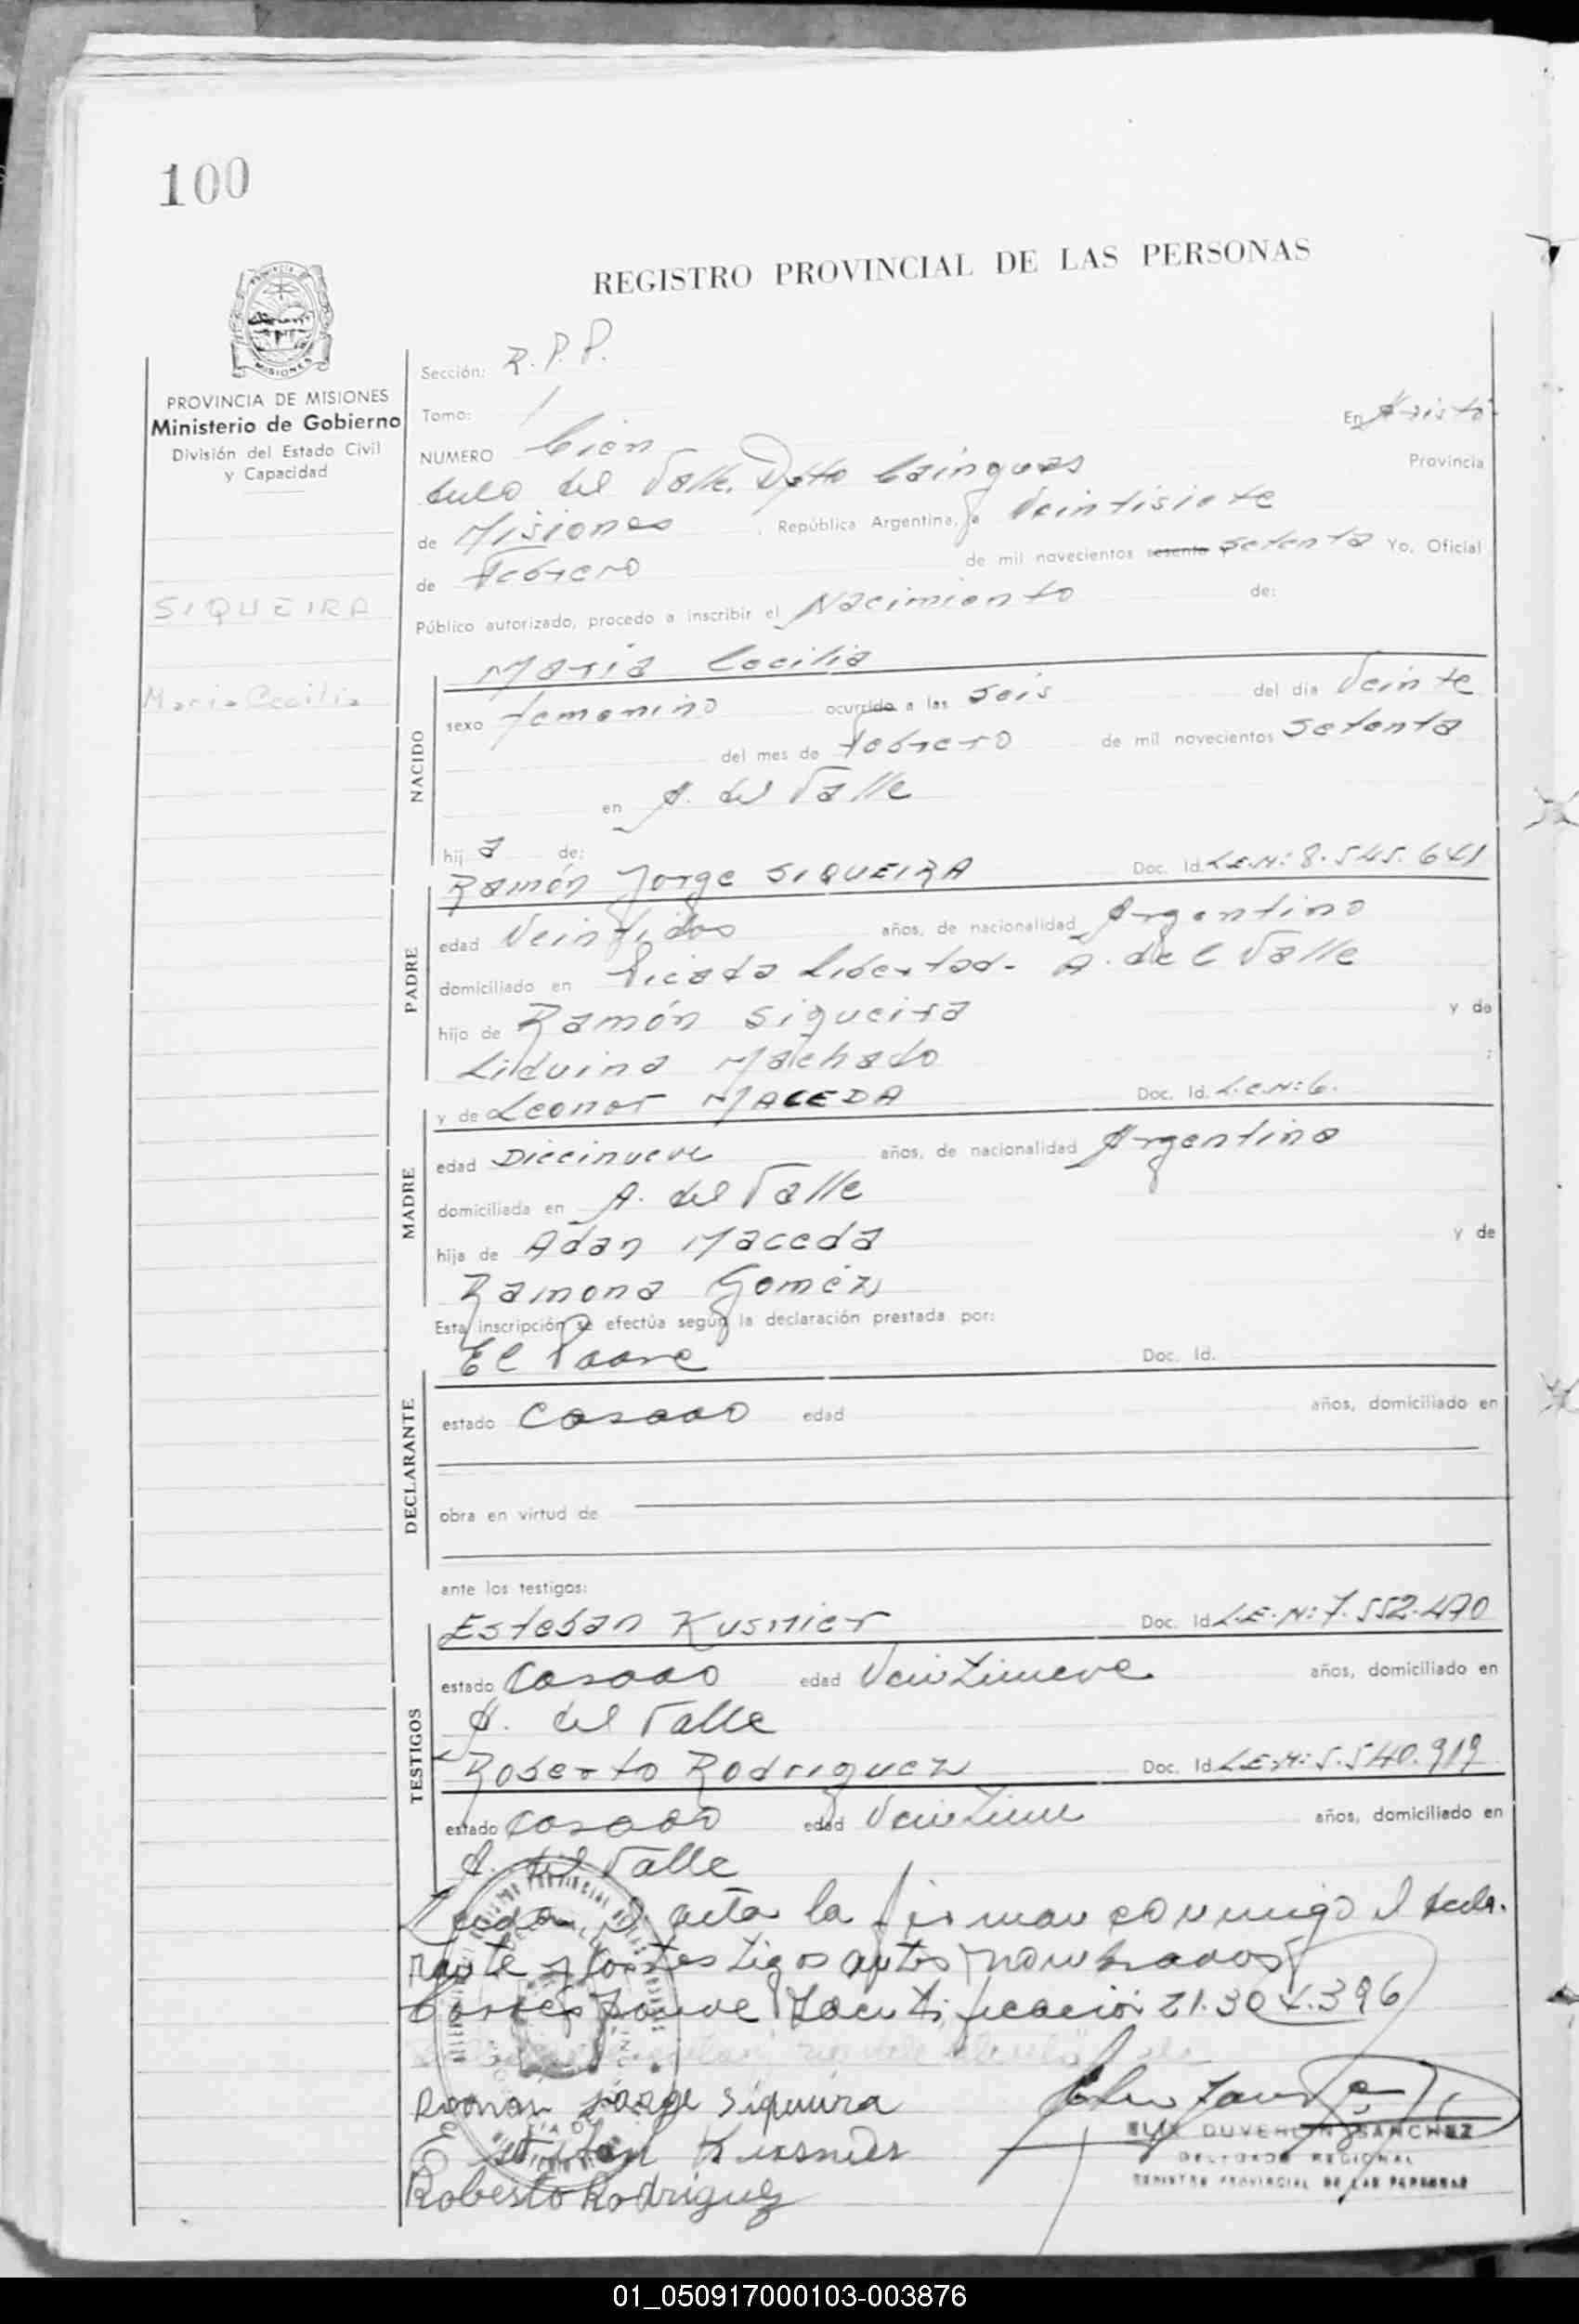 100
REGISTRO PROVINCIAL DE LAS PERSONAS
PROVINCIA DE MISIONES
Ministerio de Gobierno
División del Estado Civil
y Capacidad
SIQUEIRA
Maria Cecilia
Sección: R.P.P.
Tomo: 1 En Aristó
NUMERO Cien
bulo del Valle, Dpto Cainguas Provincia
de Misiones, República Argentina, a Veintisiete
de Febrero de mil novecientos sesenta setenta Yo, Oficial
Público autorizado, procedo a inscribir el Nacimiento de:
NACIDO
Maria Cecilia
sexo femenino ocurrido a las seis del dia Veinte
del mes de febrero de mil novecientos setenta
en A. del Valle
hij a de:
PADRE
Ramón Jorge SIQUEIRA Doc. Id. L.E.N: 8.545.641
edad Veintidos años, de nacionalidad Argentino
domiciliado en Picada Libertad - A. del Valle
hijo de Ramón Siqueira y de
Liduina Machado :
MADRE
y de Leonor MACEDA Doc. Id. L.C.N: 6.
edad Diecinueve años, de nacionalidad Argentina
domiciliada en A. del Valle
hija de Adan Maceda y de
Ramona Goméz
Esta inscripción se efectúa según la declaración prestada por:
DECLARANTE
El Padre Doc. Id.
estado Casado edad años, domiciliado en
obra en virtud de
ante los testigos:
TESTIGOS
Esteban Kusnier Doc. Id L.E.N: 7.552.470
estado Casado edad Veintinueve años, domiciliado en
A. del Valle
Roberto Rodriguez Doc. Id L.E.N: 5.540.919
estado Casado edad años, domiciliado en
A. del Valle
Leida el acta la firman conmigo el decla-
rante y los testigos antes nombrados
Corresponde Identificación 21.304.396
Ramon Jorge Siqueira
Esteban Kusnier
Roberto Rodriguez
SANCHEZ
DELEGADO REGIONAL
REGISTRO PROVINCIAL DE LAS PERSONAS
01_050917000103-003876